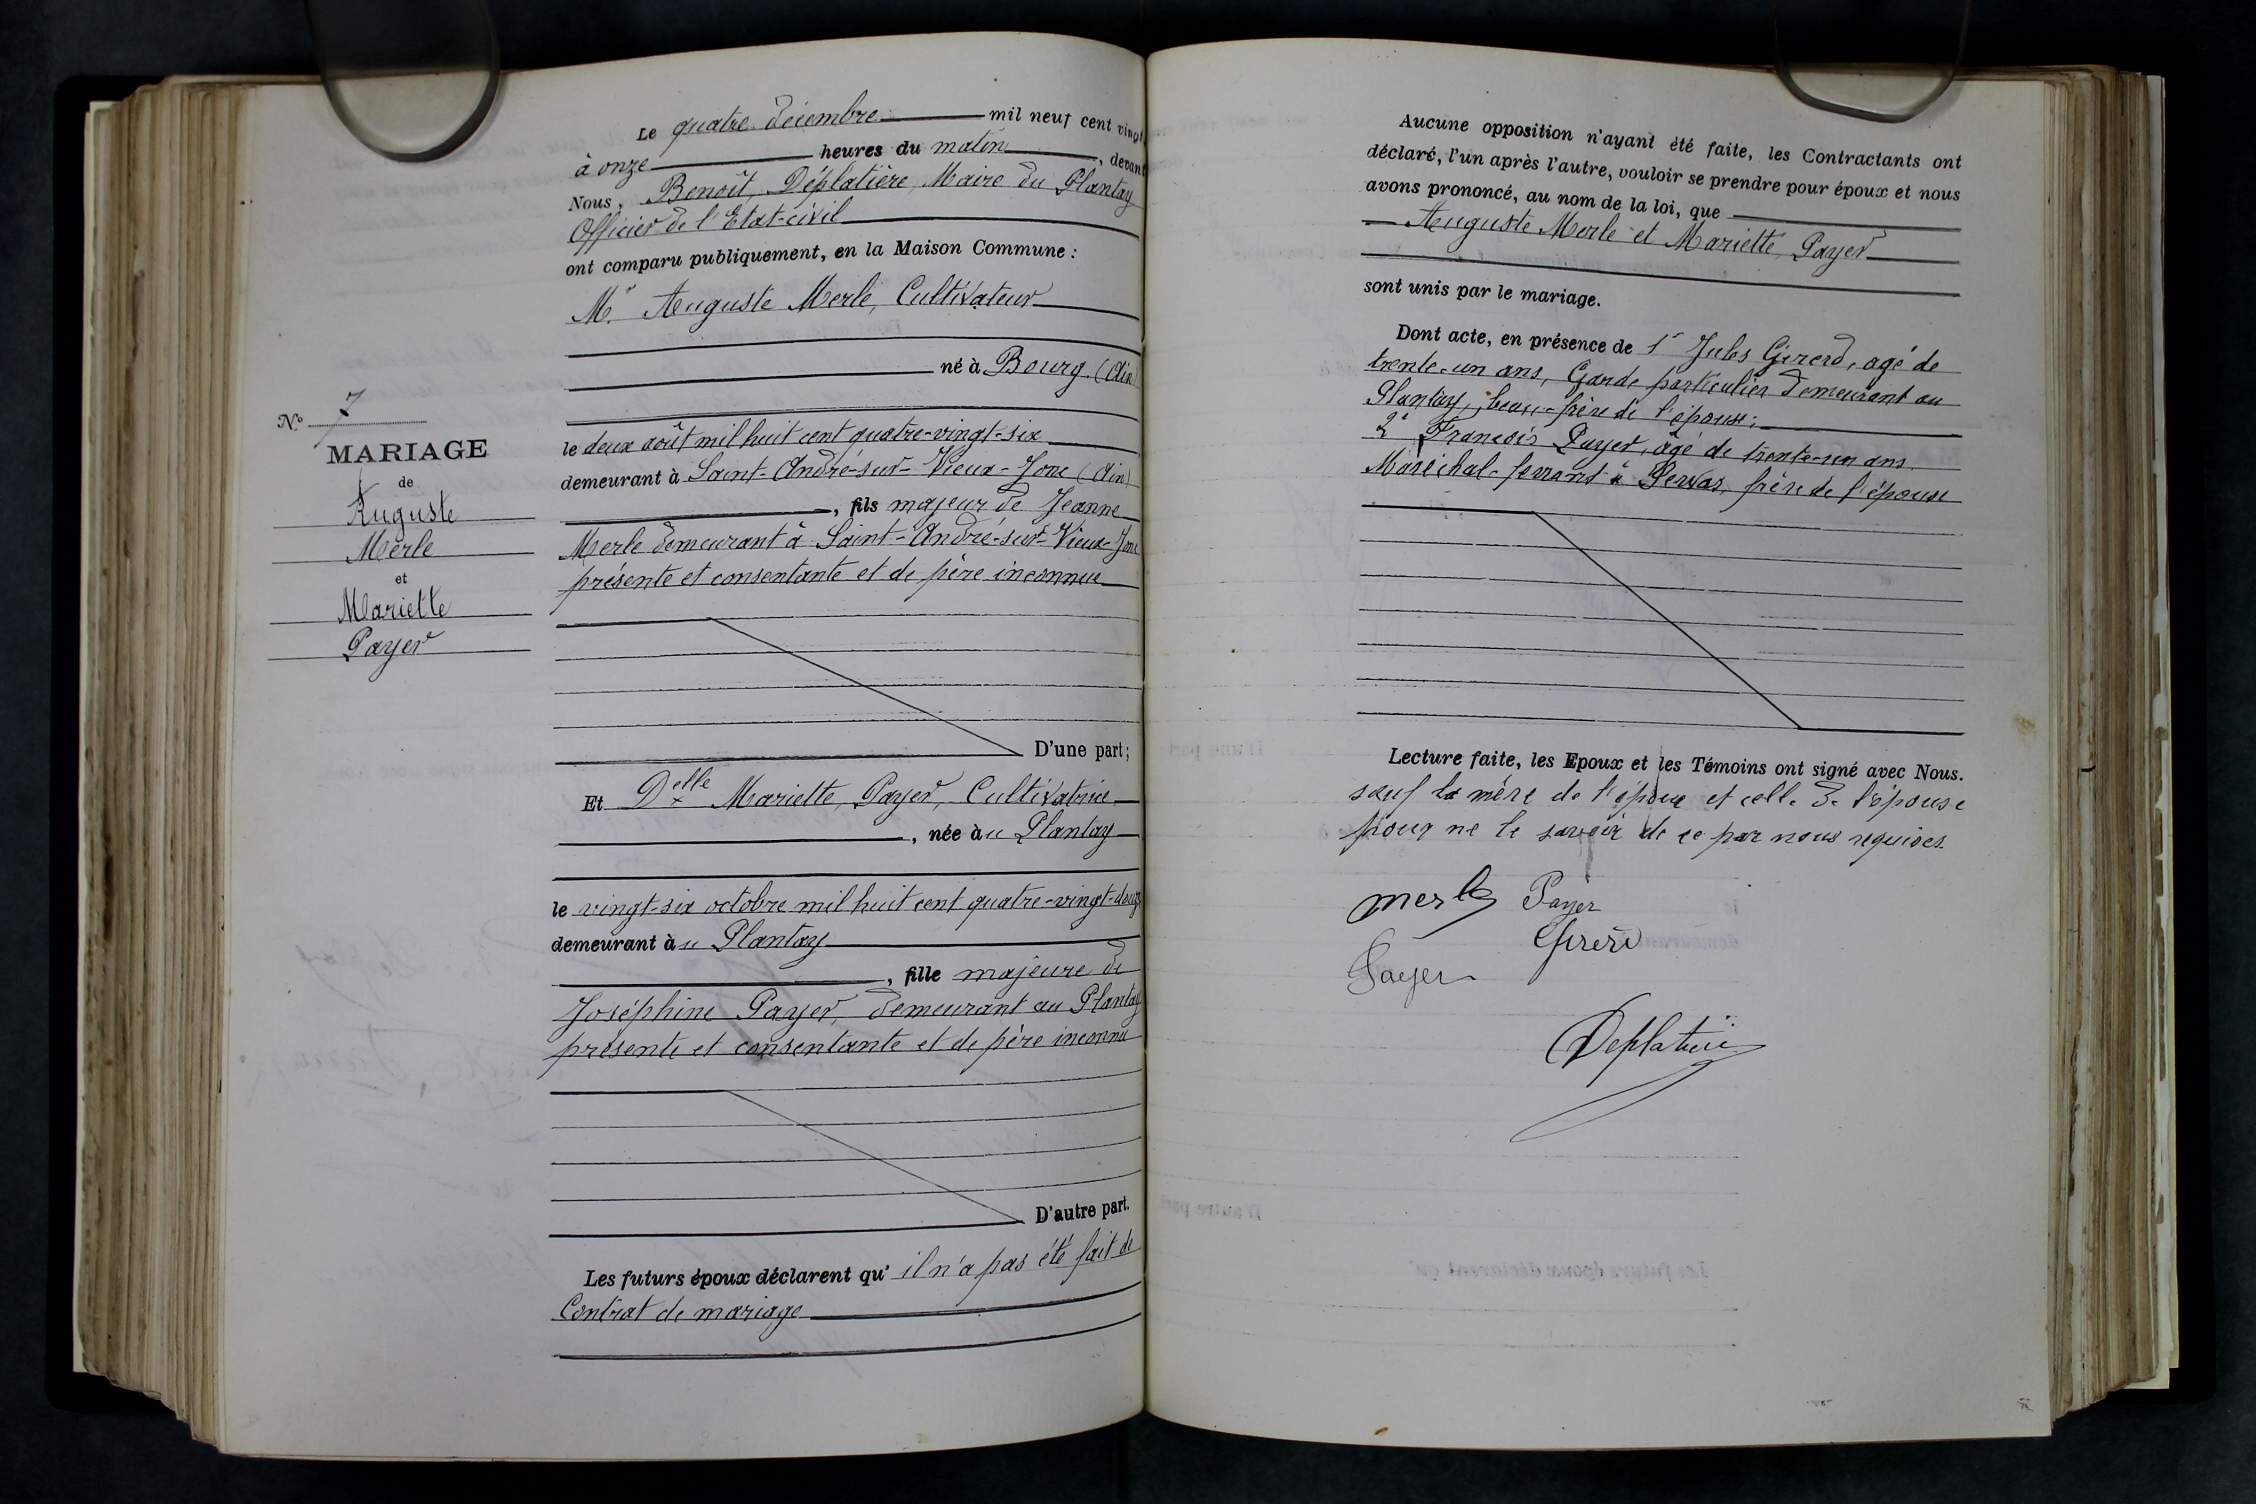 Le quatre décembre mil neuf cent vingt
à onze heures du matin, devant
Nous, Benoît Déplatière, Maire du Plantay
Officier de l'Etat-civil
ont comparu publiquement, en la Maison Commune :
Mr Auguste Merle, Cultivateur
né à Bourg. (Ain)
le deux août mil huit cent quatre-vingt-six
demeurant à Saint-André-sur-Vieux-Jonc (Ain)
, fils majeur de Jeanne
Merle demeurant à Saint-André-sur-Vieux-Jonc
présente et consentante et de père inconnue
D'une part;
Et Delle Mariette, Payer, Cultivatrice
, née à u Plantay
le vingt-six octobre mil huit cent quatre-vingt-douze
demeurant à u Plantay
, fille majeure de
Joséphine Payer, demeurant au Plantay
présente et consentante et de père inconnu
D'autre part.
Les futurs époux déclarent qu' il n'a pas été fait de
Contrat de mariage
No 7
MARIAGE
de
Auguste
Merle
et
Mariette
Payer
Aucune opposition n'ayant été faite, les Contractants ont
déclaré, l'un après l'autre, vouloir se prendre pour époux et nous
avons prononcé, au nom de la loi, que
Auguste Merle et Mariette Payer
sont unis par le mariage.
Dont acte, en présence de 1° Jules Girerd, agé de
trente-un ans, Garde particulier demeurant au
Plantay, beau-frère de l'épouse;
2° Francois Payer, âgé de trente-un ans
Maréchal-ferrant à Servas, frère de l'épouse
Lecture faite, les Epoux et les Témoins ont signé avec Nous.
sauf la mère de l'époux et celle de l'épouse
pour ne le savoir de ce par nous requises.
Merle Payer
Girerd
Payer
Deplatière